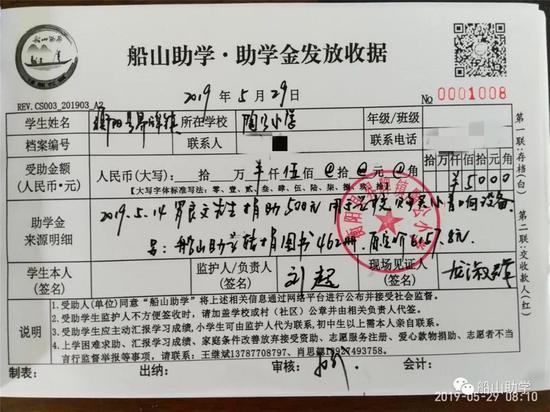 船山助学·助学金发放收据
2019 年 5 月 29 日
REV. CS003_201903_A2
No 0001008
学生姓名 所在学校 小学 年级/班级
档案编号 联系人 联系电话
受助金额(人民币·元) 人民币(大写): 拾 万 仟 伍佰 拾 元 角 拾 万 仟 佰 拾 元 角
【大写字体标准写法:零、壹、贰、叁、肆、伍、陆、柒、捌、玖、拾】
助学金来源明细 2019.5.14 罗良文先生捐助500元用于
船山助学转捐图书462册
学生本人(签名) 监护人/负责人(签名) 刘超 现场见证人(签名)
说明
1.受助人(单位)同意“船山助学”将上述相关信息通过网络平台进行公布并接受社会监督。
2.受助学生监护人不方便签收时,请加盖学校或村(社区)公章并由相关负责人代签。
3.受助学生应主动汇报学习成绩,小学生可由监护人代为联系,初中生以上需本人亲自联系。
4.上学困难求助、汇报学习成绩、家庭条件改善放弃接受资助、志愿服务注册、爱心款物捐助、志愿者不当言行监督举报等事项,请联系:王继斌13787708797、肖思
制表: 出纳: 审核: 会计:
第一联:存档(白)
第二联:交收款人(红)
船山助学
2019-05-29 08:10